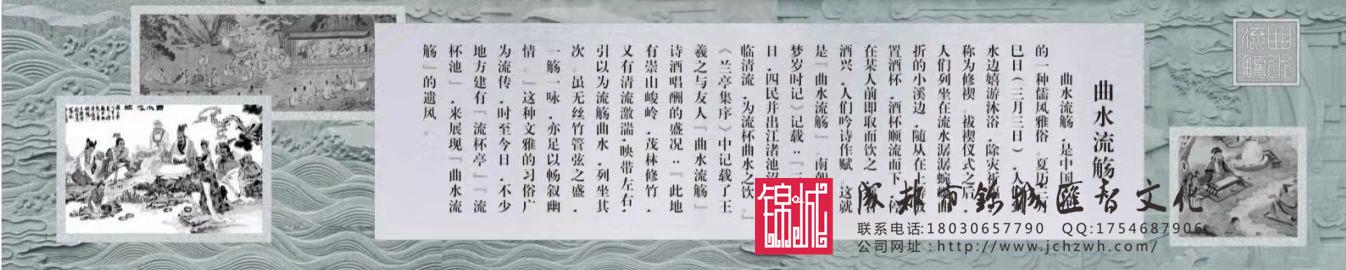 曲水流觞
曲水流觞，是中国
的一种儒风雅俗，夏历三
巳日（三月三日），人
水边嬉游沐浴，除灾祈
称为修禊，祓禊仪式之后
人们列坐在流水潺潺蜿
折的小溪边，随从在上游放
置酒杯，酒杯顺流而下，停
在某人前即取而饮之，
酒兴，人们吟诗作赋，这就
是『曲水流觞』，南朝
梦岁时记》记载：『三
日，四民并出江渚池沼
临清流，为流杯曲水之饮。』
《兰亭集序》中记载了王
羲之与友人『曲水流觞』
诗酒唱酬的盛况：『此地
有崇山峻岭，茂林修竹，
又有清流激湍，映带左右，
引以为流觞曲水，列坐其
次，虽无丝竹管弦之盛，
一觞一咏，亦足以畅叙幽
情。』这种文雅的习俗广
为流传，时至今日，不少
地方建有『流杯亭』『流
杯池』，来展现『曲水流
觞』的遗风。
曲水流觞
锦城
成都市锦城汇智文化
联系电话:18030657790 QQ:175468790
公司网址:http://www.jchzwh.com